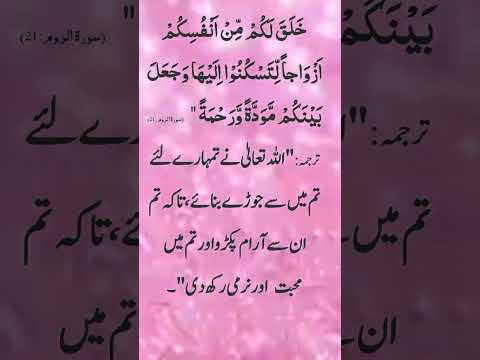 خَلَقَ لَكُمْ مِّنْ اَنْفُسِكُمْ
اَزْوَاجاً لِّتَسْكُنُوْا اِلَيْهَا وَجَعَلَ
بَيْنَكُمْ مَّوَدَّةً وَّرَحْمَةً " (سورۃ الروم:21)
ترجمہ: "اللہ تعالیٰ نے تمہارے لئے
تم میں سے جوڑے بنائے، تاکہ تم
ان سے آرام پکڑو اور تم میں
محبت اور نرمی رکھ دی"۔